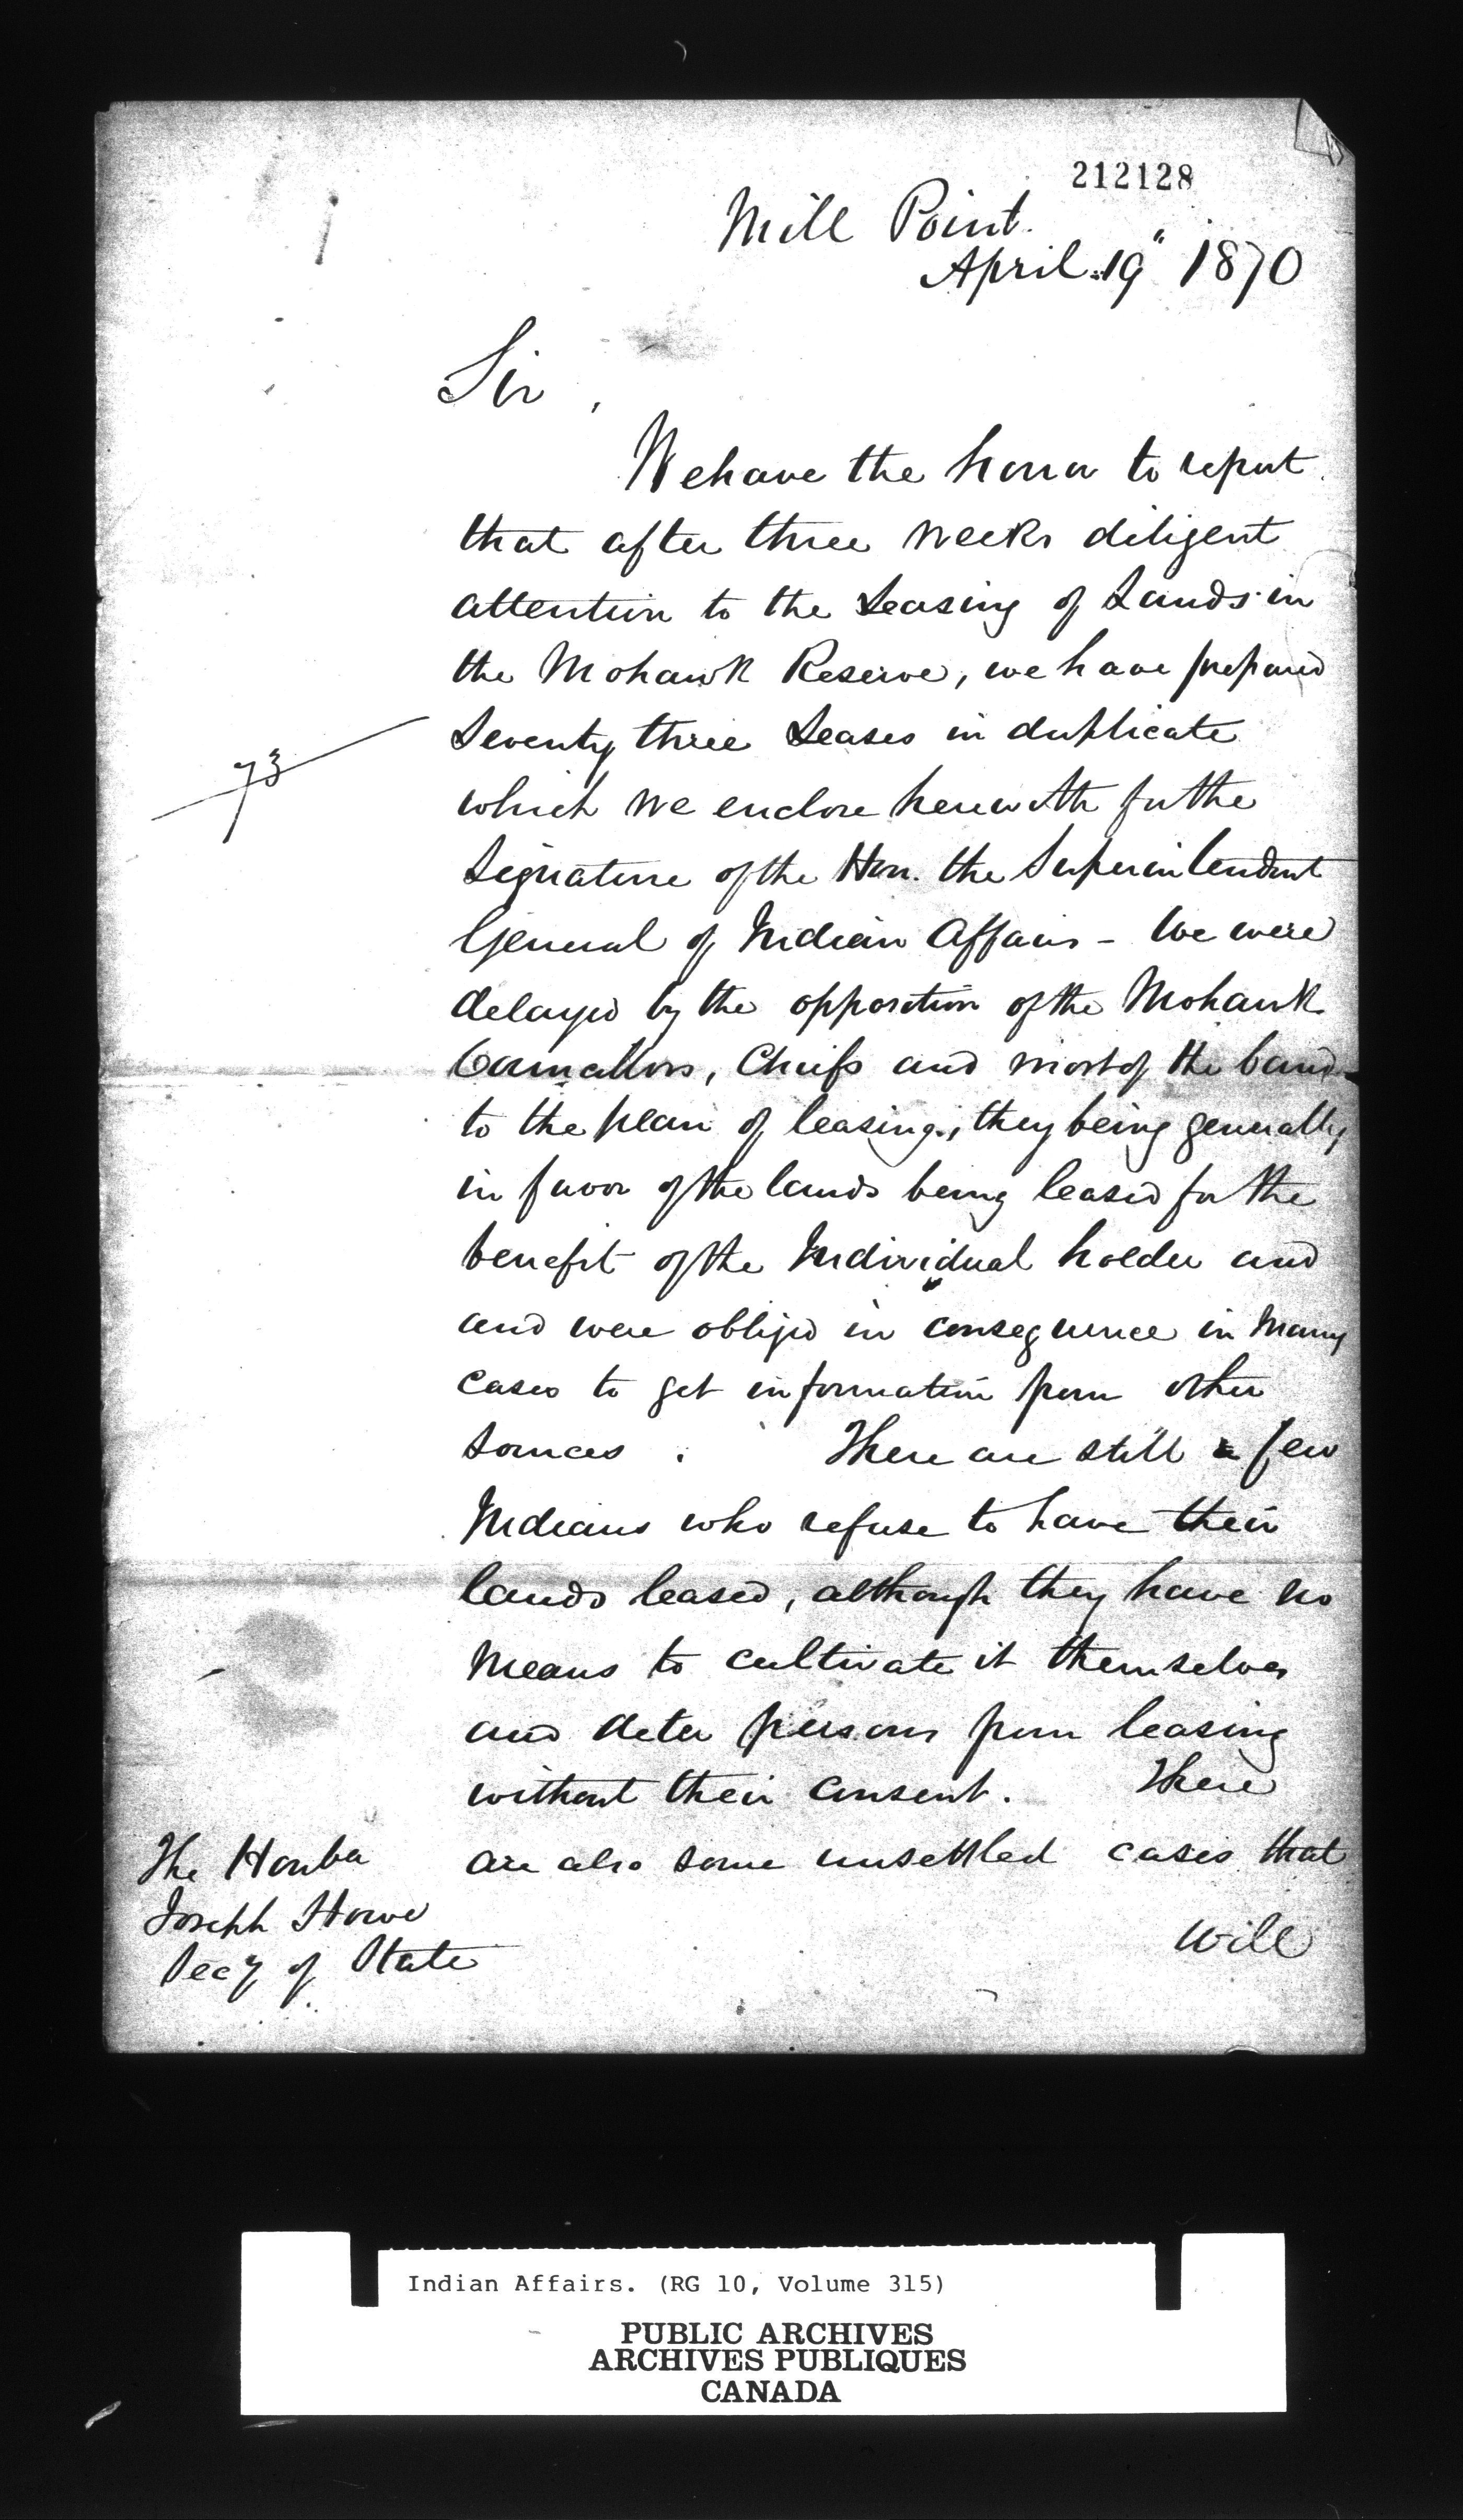 212128
Mill Point.
April 19" 1870
Sir,
We have the honor to report
that after three weeks diligent
attention to the Leasing of Lands in
the Mohawk Reserve, we have prepared
Seventy three Leases in duplicate
73
which we enclose herewith for the
Signature of the Hon. the Superintendent
General of Indian Affairs - We were
delayed by the opposition of the Mohawk
Councillors, Chiefs and most of the band
to the plan of leasing, they being generally
in favor of the lands being leased for the
benefit of the Individual holder and
and were obliged in consequence in many
cases to get information from other
Sources. There are still a few
Indians who refuse to have their
lands leased, although they have no
means to cultivate it themselves
and deter persons from leasing
without their consent. There
are also some unsettled cases that
will
The Honble
Joseph Howe
Secy of State
Indian Affairs. (RG 10, Volume 315)
PUBLIC ARCHIVES
ARCHIVES PUBLIQUES
CANADA